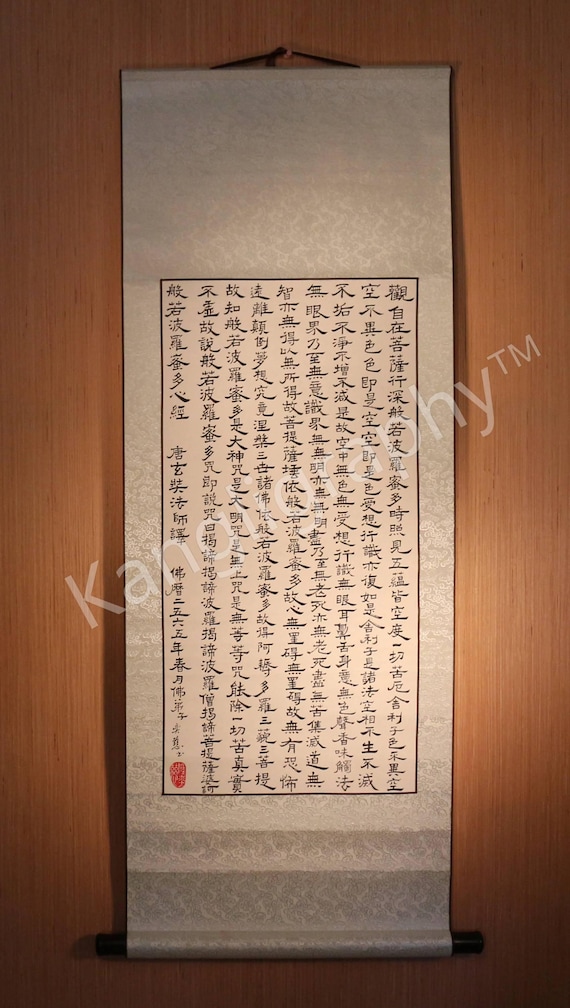 觀自在菩薩行深般若波羅蜜多時照見五蘊皆空度一切苦厄舍利子色不異空
空不異色色即是空空即是色受想行識亦復如是舍利子是諸法空相不生不滅
不垢不淨不增不減是故空中無色無受想行識無眼耳鼻舌身意無色聲香味觸法
無眼界乃至無意識界無無明亦無無明盡乃至無老死亦無老死盡無苦集滅道無
智亦無得以無所得故菩提薩埵依般若波羅蜜多故心無罣礙無罣礙故無有恐怖
遠離顛倒夢想究竟涅槃三世諸佛依般若波羅蜜多故得阿耨多羅三藐三菩提
故知般若波羅蜜多是大神咒是大明咒是無上咒是無等等咒能除一切苦真實
不虛故說般若波羅蜜多咒即說咒曰揭諦揭諦波羅揭諦波羅僧揭諦菩提薩婆訶
般若波羅蜜多心經 唐玄奘法師譯 佛曆二五六五年春月佛弟子
Kangligraphy™